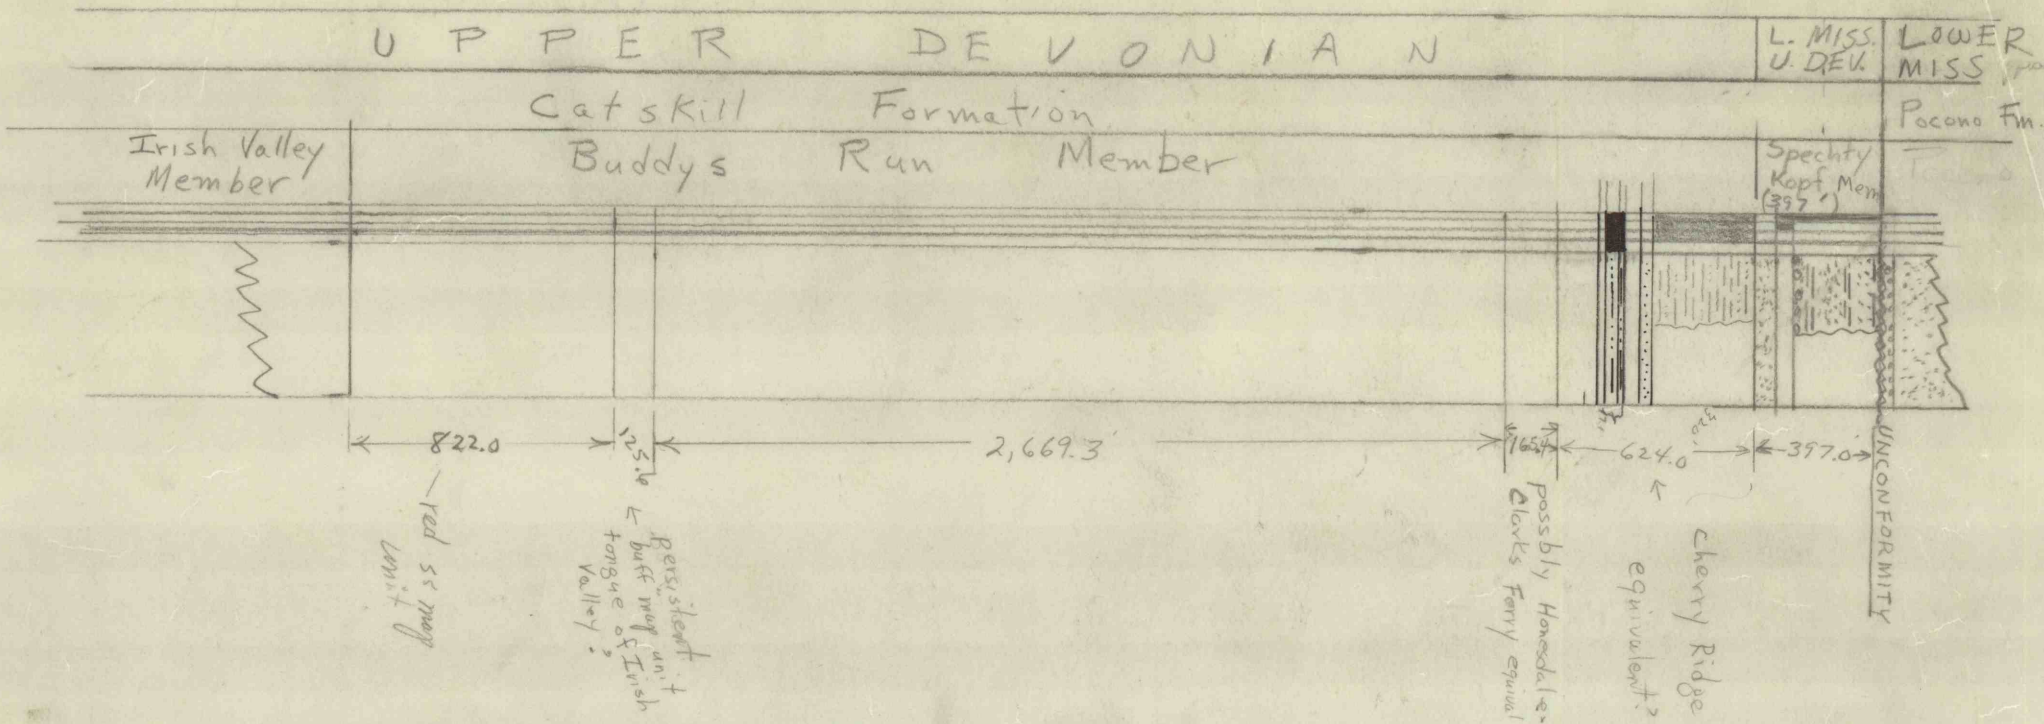 UPPER DEVONIAN
L. MISS.
U. DEV.
LOWER
MISS
Catskill Formation
Pocono Fm.
Irish Valley
Member
Buddys Run Member
Spechty
Kopf Mem
(397')
822.0
125.6
2,669.3
165.4
624.0
397.0
520.
red ss map
unit
← persistent
"buff" map unit
tongue of Irish
Valley?
possbly Honesdale-
Clarks Ferry equival
Cherry Ridge
equivalent?
UNCONFORMITY